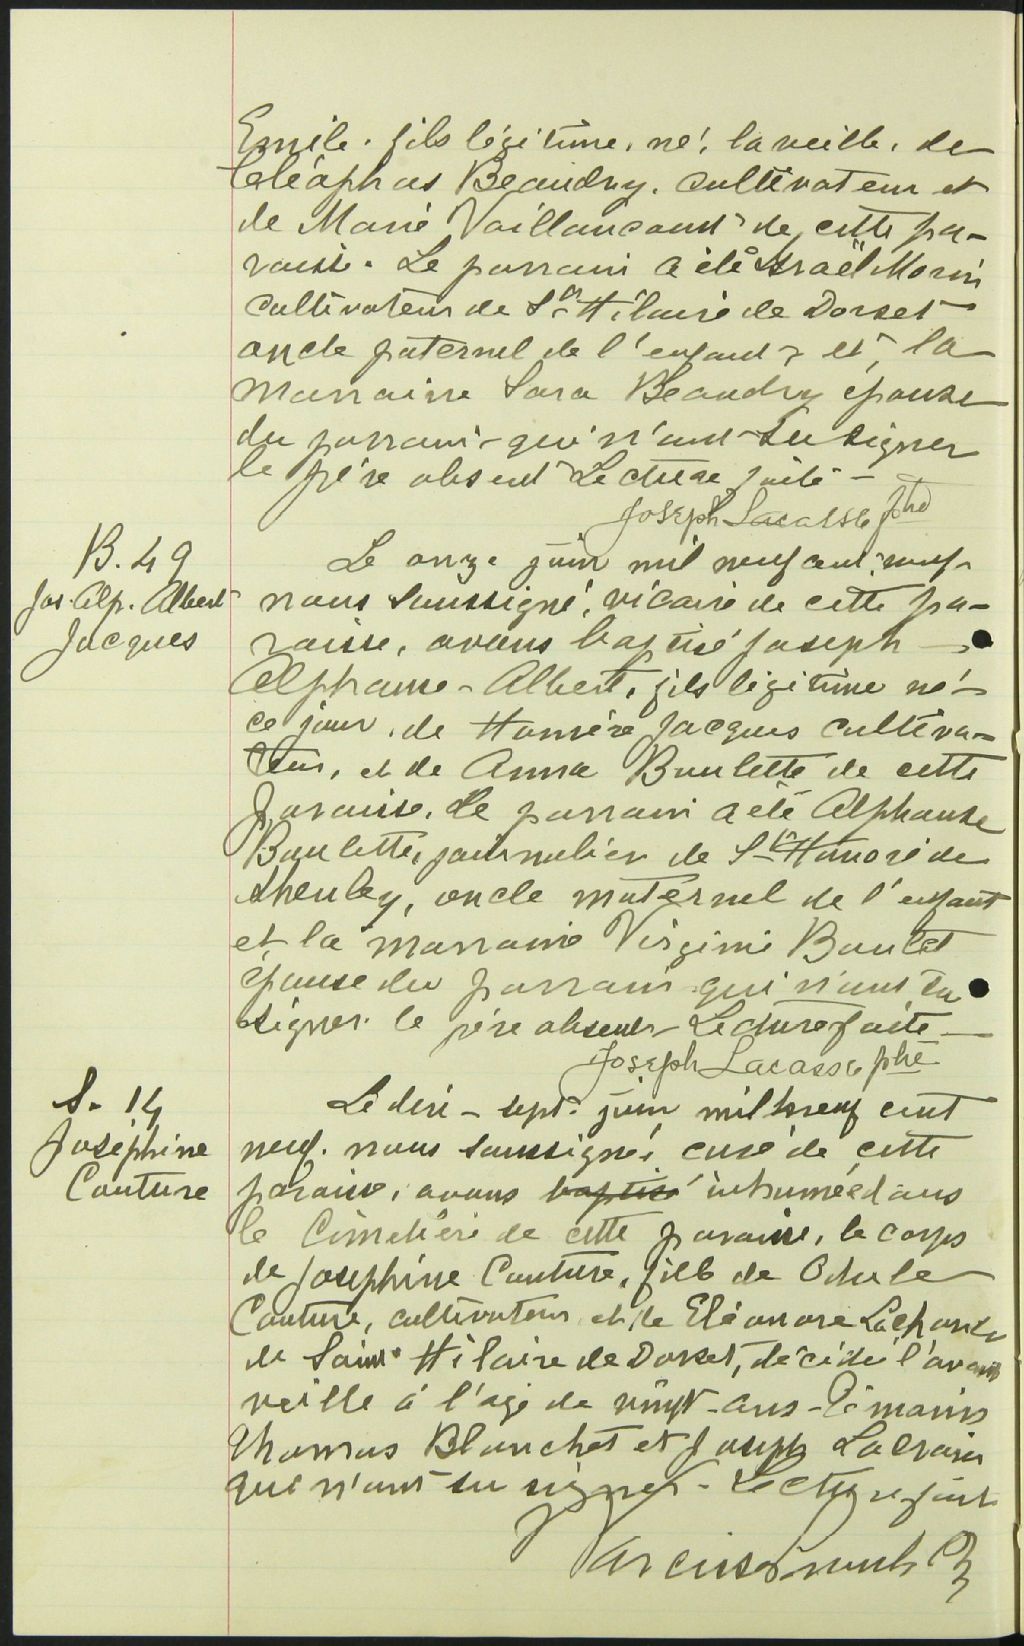 Emile. fils légitime, né, la veille, de
Cléophas Beaudry. cultivateur et
de Marie Vaillancourt de cette pa-
roisse. Le parrain a été Israël Morin
cultivateur de St Hilaire de Dorset
oncle paternel de l'enfant et, la
marraine Sara Beaudry épouse
du parrain - qui n'ont su signer
le père absent Lecture faite -
Joseph Lacasse ptre
B. 49
Jos. Alp. Albert
Jacques
Le onze juin mil neuf cent neuf
nous soussigné, vicaire de cette pa-
roisse, avons baptisé Joseph
Alphonse - Albert, fils légitime né
ce jour, de Homère Jacques cultiva-
teur, et de Anna Boulette de cette
paroisse. Le parrain a été Alphonse
Boulette, journalier de St Honoré de
Shenley, oncle maternel de l'enfant
et la marraine Virginie Boulet
épouse du parrain qui n'ont su
signer. le père absent - Lecture faite
Joseph Lacasse ptre
S. 14
Joséphine
Couture
Le dix - sept juin mil neuf cent
neuf. nous soussigné, curé de cette
paroisse, avons baptisé inhumé dans
le Cimetière de cette paroisse, le corps
de Josephine Couture, fille de Odule
Couture, cultivateur et de Eléonore Lachance
de Saint Hilaire de Dorset, décédée l'avant
veille à l'age de vingt - ans - Témoins
Thomas Blanchet et Joseph
qui n'ont su signer - Lecture faite
Narcisse